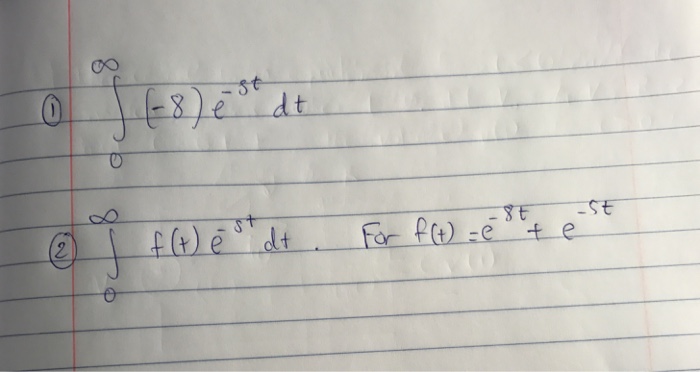 ① ∫₀^∞ (-8) e^{-st} dt
② ∫₀^∞ f(t) e^{-st} dt. For f(t) = e^{-8t} + e^{-5t}